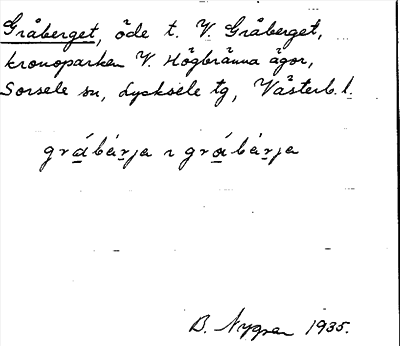 Gråberget, öde t. V. Gråberget,
kronoparken V. Högbränna ägor,
Sorsele sn, Lycksele tg, Västerb. l.
gråbárja ~ gråbárja
B. Nygren 1935.